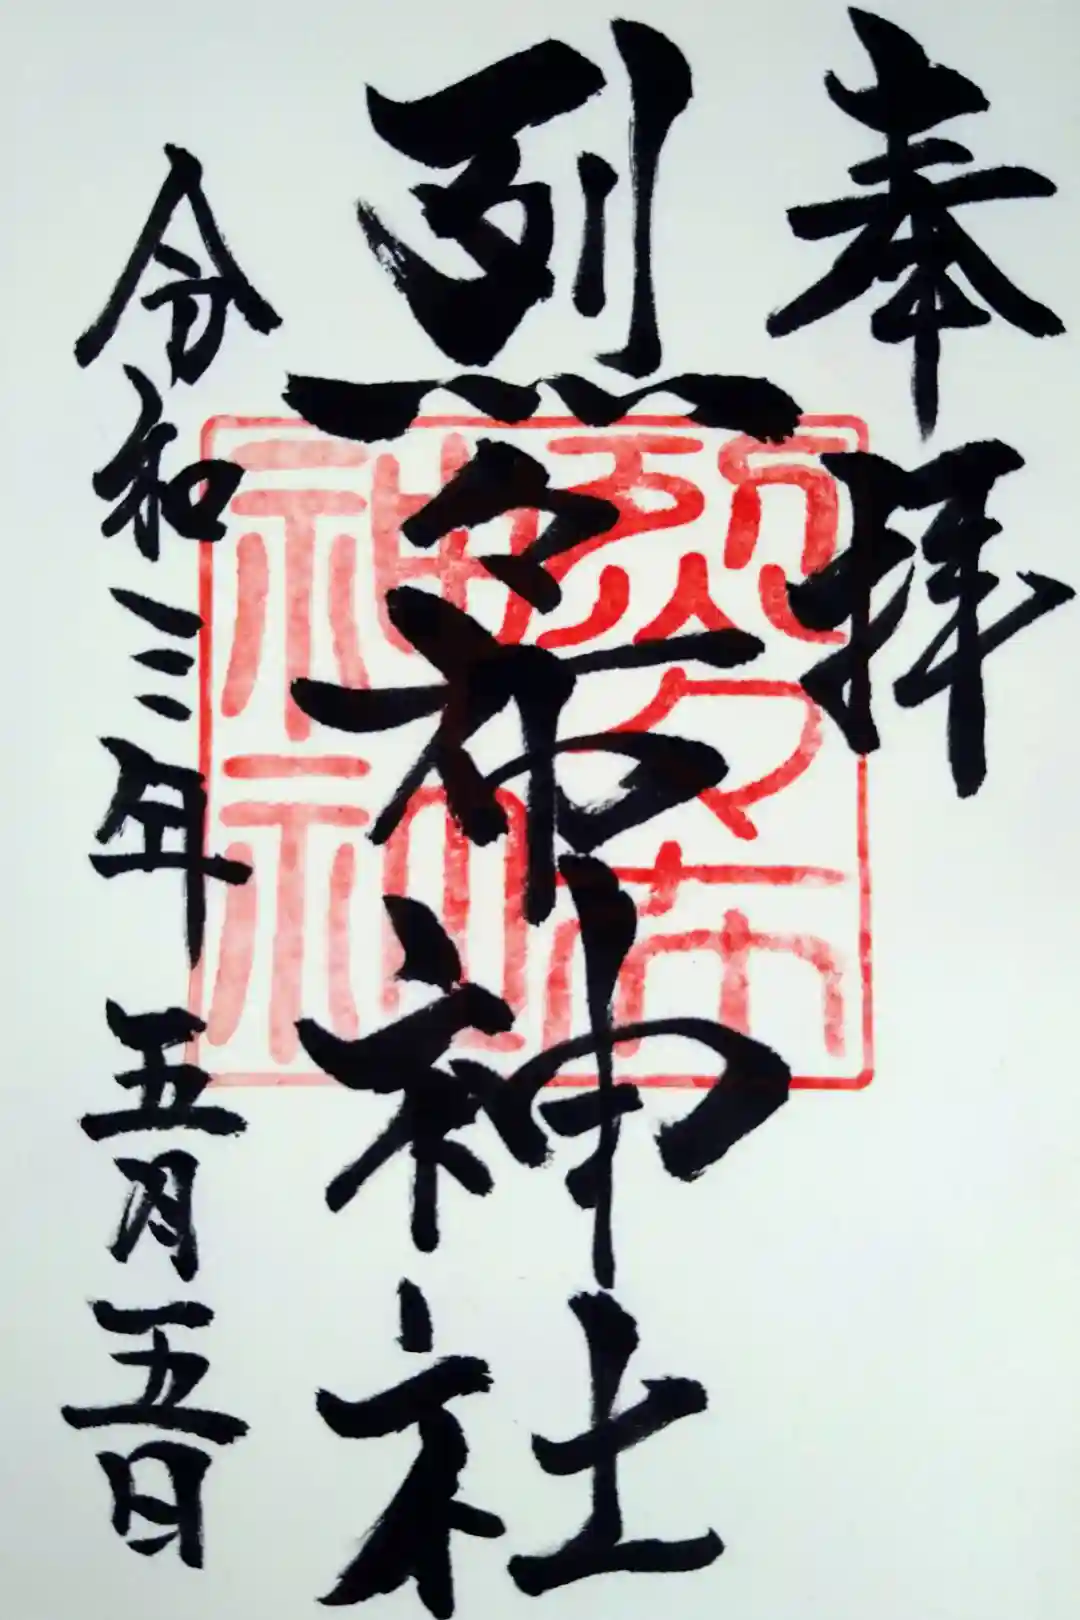 奉拝
烈々布神社
令和三年五月五日
烈々布
神